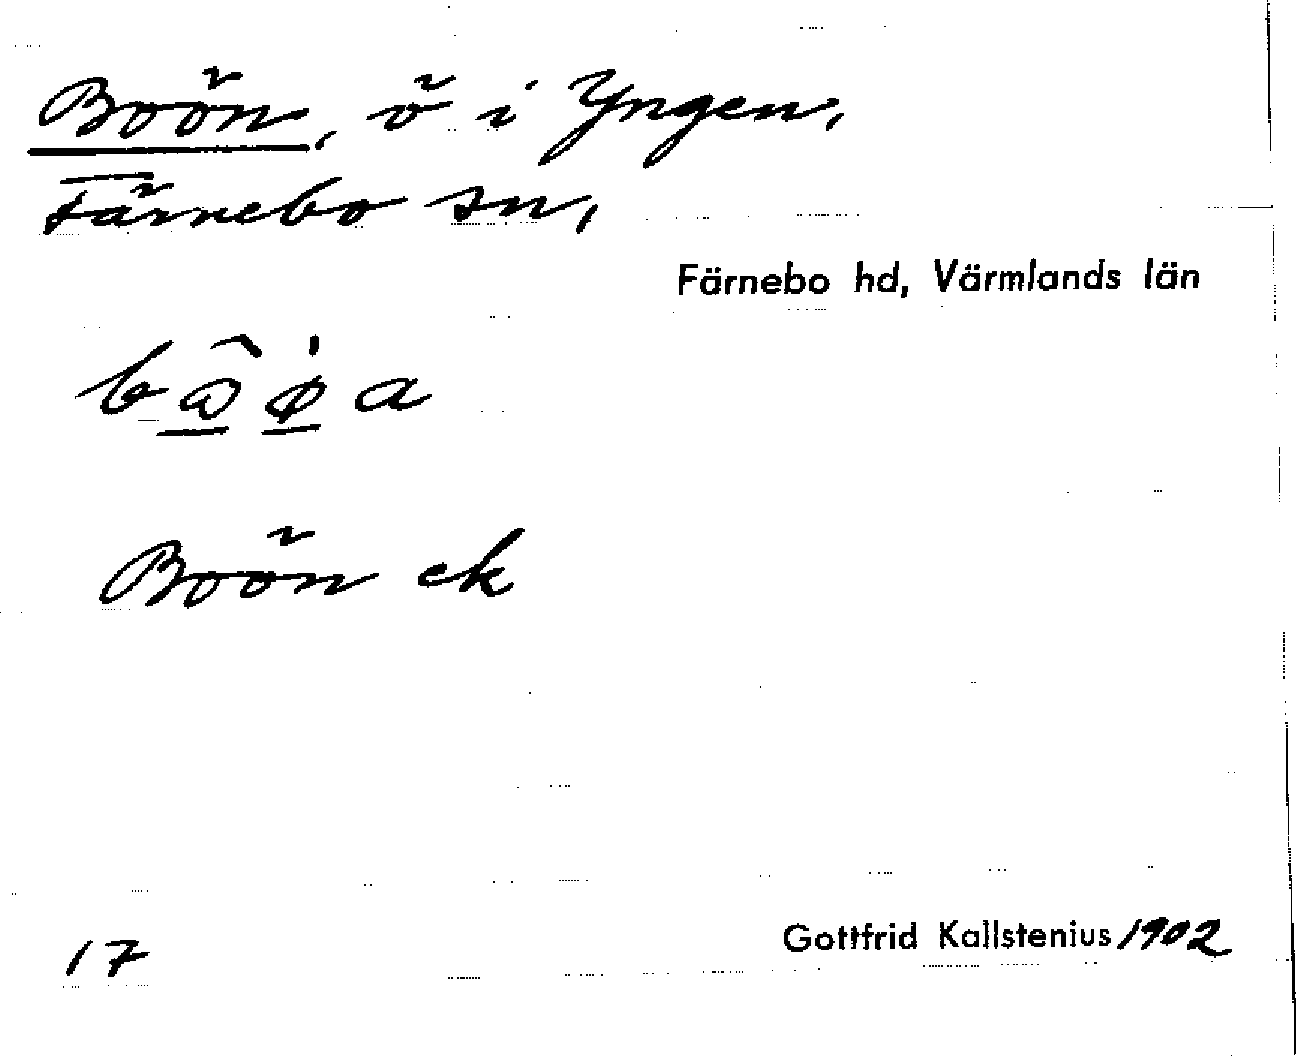 Boön, ö i Yngen,
Färnebo sn,
Färnebo hd, Värmlands län
Boön ek
17
Gottfrid Kallstenius 1902